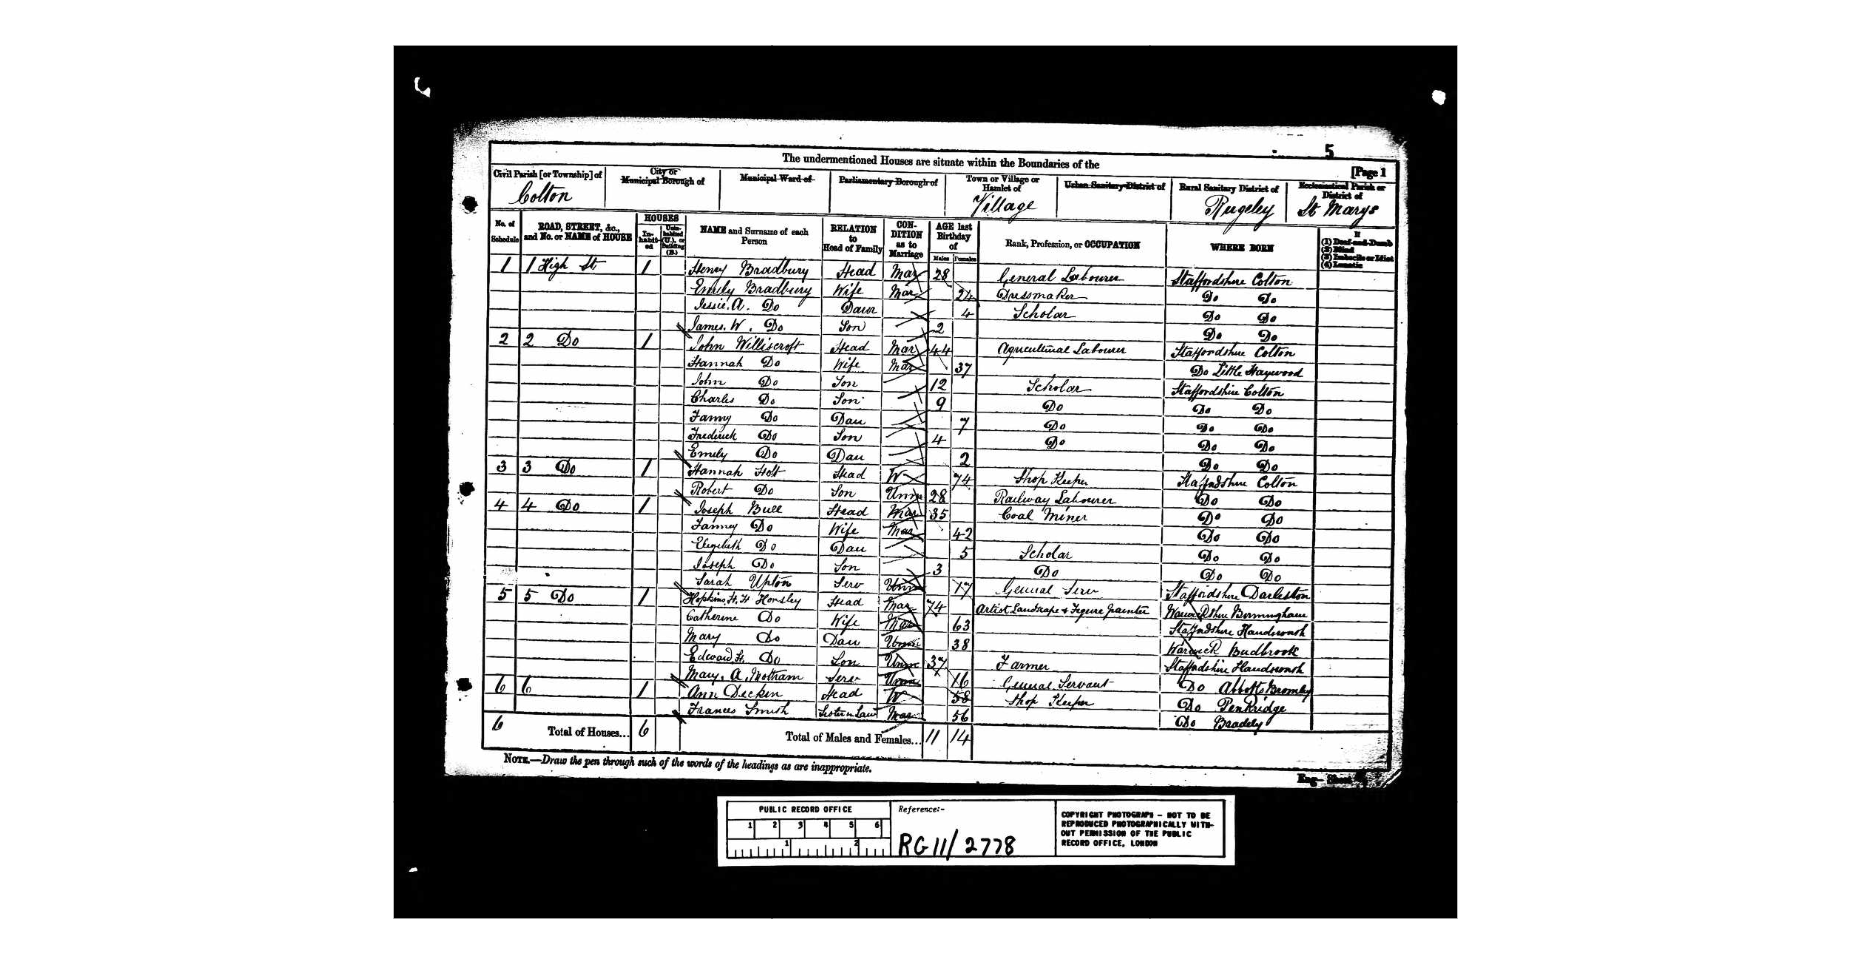 5
The undermentioned Houses are situate within the Boundaries of the
[Page 1
Civil Parish [or Township] of
City or Municipal Borough of
Municipal Ward of
Parliamentary Borough of
Town or Village or Hamlet of
Urban Sanitary District of
Rural Sanitary District of
Ecclesiastical Parish or District of
Colton
Village
Rugeley
St Marys
No. of Schedule
ROAD, STREET, &c., and No. or NAME of HOUSE
HOUSES
In-habit-ed
Unin-habited (U.), or Building (B.)
NAME and Surname of each Person
RELATION to Head of Family
CON-DITION as to Marriage
AGE last Birthday of
Males
Females
Rank, Profession, or OCCUPATION
WHERE BORN
If
(1) Deaf-and-Dumb
(2) Blind
(3) Imbecile or Idiot
(4) Lunatic
1 1 High St 1 Henry Bradbury Head Mar 28 General Labourer Staffordshire Colton
Emily Bradbury Wife Mar 24 Dressmaker Do Do
Jessie. A. Do Daur 4 Scholar Do Do
James. W. Do Son 2 Do Do
2 2 Do 1 John Williscroft Head Mar 44 Agricultural Labourer Staffordshire Colton
Hannah Do Wife Mar 37 Do Little Haywood
John Do Son 12 Scholar Staffordshire Colton
Charles Do Son 9 Do Do Do
Fanny Do Dau 7 Do Do Do
Frederick Do Son 4 Do Do Do
Emily Do Dau 2 Do Do
3 3 Do 1 Hannah Holt Head W 74 Shop Keeper Staffordshire Colton
Robert Do Son Unm 28 Railway Labourer Do Do
4 4 Do 1 Joseph Bull Head Mar 35 Coal Miner Do Do
Fanney Do Wife Mar 42 Do Do
Elizebeth Do Dau 5 Scholar Do Do
Joseph Do Son 3 Do Do Do
Sarah Upton Serv Unm 17 General Serv Staffordshire Darleston
5 5 Do 1 Hopkins. H. H Horsley Head Mar 74 Artist Landscape & Figure painter Warwickshire Birmingham
Catherine Do Wife Mar 63 Staffordshire Handsworth
Mary Do Dau Unm 38 Warwick Budbrook
Edward H. Do Son Unm 37 Farmer Staffordshire Handsworth
Mary. A. Motham Serv Unm 16 General Servant Do Abbotts Bromley
6 6 1 Ann Decken Head W 58 Shop Keeper Do Penkridge
Frances Smith Sister in Law Mar 56 Do Bradely
6 Total of Houses... 6 Total of Males and Females... 11 14
NOTE.—Draw the pen through such of the words of the headings as are inappropriate.
Eng— Sheet
PUBLIC RECORD OFFICE
1 2 3 4 5 6
1 2
Reference:-
RG 11/2778
COPYRIGHT PHOTOGRAPH - NOT TO BE
REPRODUCED PHOTOGRAPHICALLY WITH-
OUT PERMISSION OF THE PUBLIC
RECORD OFFICE, LONDON